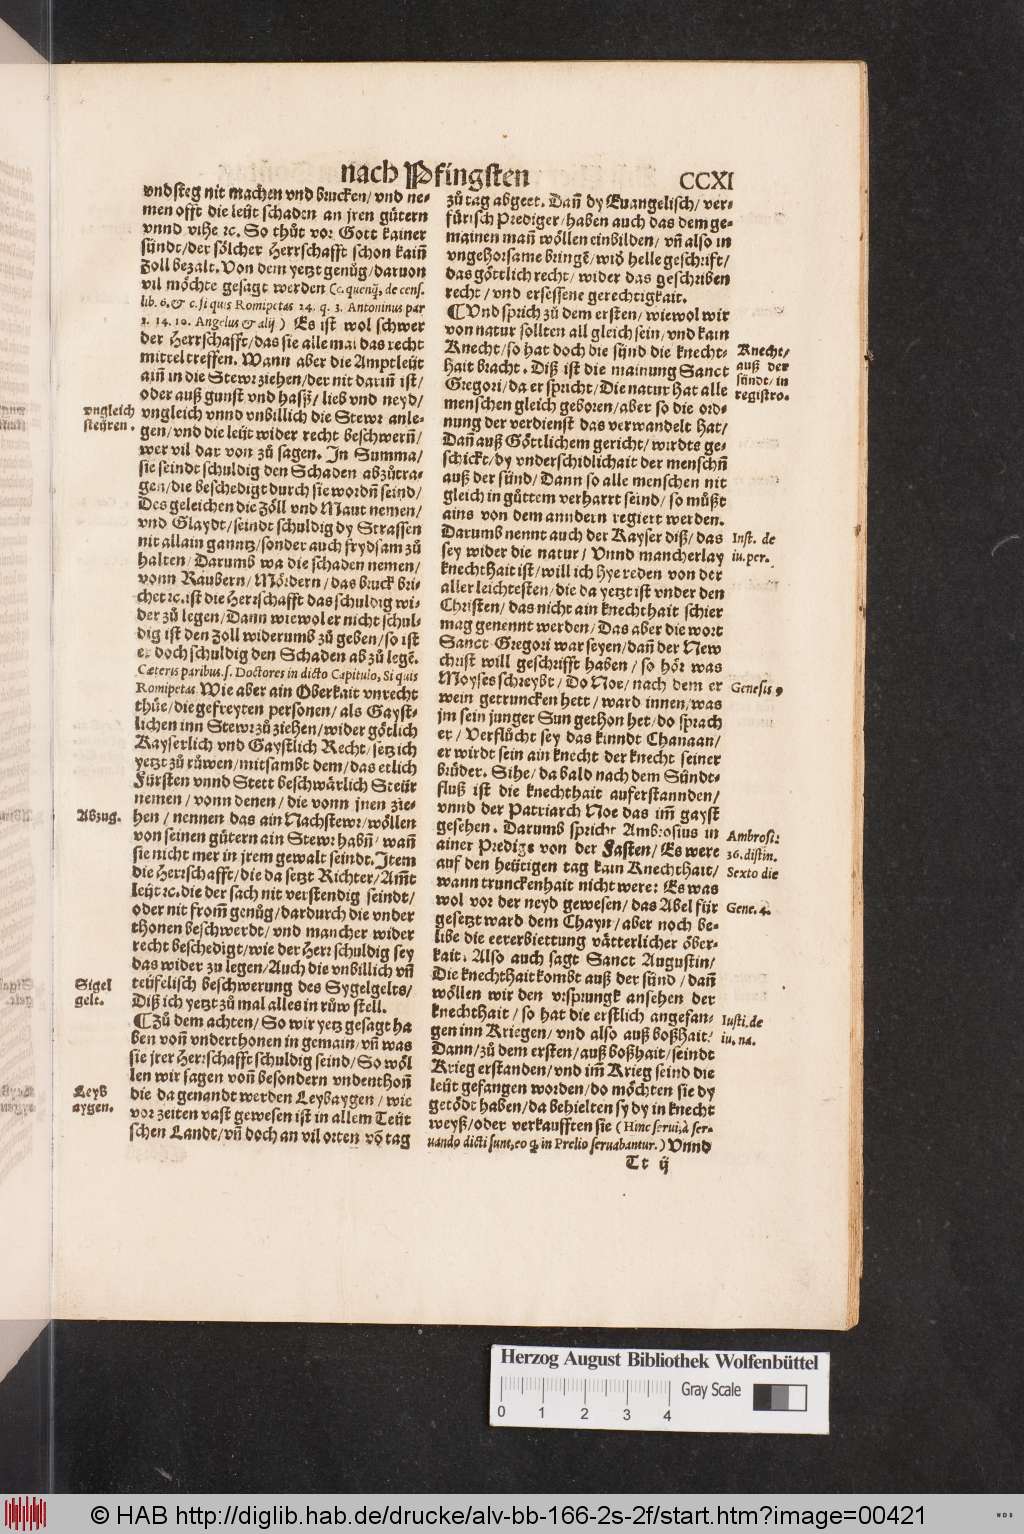 nach Pfingsten
CCXI
vnd steg nit machen vnd brucken/ vnd ne-
men offt die leüt schaden an jren gütern
vnnd vihe ꝛc. So thůt vor Gott kainer
sündt/ der sölcher Herrschafft schon kaiñ
Zoll bezalt. Von dem yetzt genůg/ daruon
vil möchte gesagt werden (c. quenq́, de cens.
lib. 6. & c. si quis Romipetas 24. q. 3. Antoninus par
2. 14. 10. Angelus & alij) Es ist wol schwer
der Herrschafft/ das sie alle mal das recht
mittel treffen. Wann aber die Amptleüt
aiñ in die Stewr ziehen/ der nit dariñ ist/
oder auß gunst vnd haß/ lieb vnd neyd/
vngleich vnnd vnbillich die Stewr anle-
gen/ vnd die leüt wider recht beschwerñ/
wer vil dar von zů sagen. In Summa/
sie seindt schuldig den Schaden abzůtra-
gen/ die beschedigt durch sie wordñ seind/
Des geleichen die Zöll vnd Maut nemen/
vnd Glaydt/ seindt schuldig dy Strassen
nit allain ganntz/ sonder auch frydsam zů
halten/ Darumb wa die schaden nemen/
vonn Raubern/ Mördern/ das bruck bri-
chet ꝛc. ist die Herrschafft das schuldig wi-
der zů legen/ Dann wiewol er nicht schul-
dig ist den Zoll widerumb zů geben/ so ist
er doch schuldig den Schaden ab zů legẽ.
Cæteris paribus. s. Doctores in dicto Capitulo, Si quis
Romipetas Wie aber ain Oberkait vnrecht
thůe/ die gefreyten personen/ als Gayst-
lichen inn Stewr zů ziehen/ wider götlich
Kayserlich vnd Gaystlich Recht/ setz ich
yetzt zů růwen/ mitsambt dem/ das etlich
Fürsten vnnd Stett beschwärlich Steür
nemen/ vonn denen/ die vonn jnen zie-
hen/ nennen das ain Nachstewr/ wöllen
von seinen gütern ain Stewr habñ/ wañ
sie nicht mer in jrem gewalt seindt. Item
die Herrschafft/ die da setzt Richter/ Am̃t
leüt ꝛc. die der sach nit verstendig seindt/
oder nit from̃ genůg/ dardurch die vnder
thonen beschwerdt/ vnd mancher wider
recht beschedigt/ wie der Herr schuldig sey
das wider zu legen/ Auch die vnbillich vñ
teüfelisch beschwerung des Sygelgelts/
Diß ich yetzt zů mal alles in růw stell.
¶ Zů dem achten/ So wir yetz gesagt ha
ben voñ vnderthonen in gemain/ vñ was
sie jrer Herrschafft schuldig seind/ So wöl
len wir sagen voñ besondern vndenthoñ
die da genandt werden Leybaygen/ wie
vor zeiten vast gewesen ist in allem Teüt
schen Landt/ vñ doch an vil orten võ tag
vngleich
steüren.
Abzug.
Sigel
gelt.
Leyb
aygen.
zů tag abgeet. Dañ dy Euangelisch/ ver-
fürisch Prediger/ haben auch das dem ge-
mainen mañ wöllen einbilden/ vñ also in
vngehorsame bringẽ/ wid̃ helle geschrift/
das göttlich recht/ wider das geschriben
recht/ vnd ersessene gerechtigkait.
¶ Vnd sprich zů dem ersten/ wiewol wir
von natur sollten all gleich sein/ vnd kain
Knecht/ so hat doch die sünd die knecht-
hait bracht. Diß ist die mainung Sanct
Gregori/ da er spricht/ Die natur hat alle
menschen gleich geboren/ aber so die ord-
nung der verdienst das verwandelt hat/
Dañ auß Göttlichem gericht/ wirdts ge-
schickt/ dy vnderschidlichait der menschñ
auß der sünd/ Dann so alle menschen nit
gleich in güttem verharrt seind/ so můßt
ains von dem anndern regiert werden.
Darumb nennt auch der Kayser diß/ das
sey wider die natur/ Vnnd mancherlay
knechthait ist/ will ich hye reden von der
aller leichtesten/ die da yetzt ist vnder den
Christen/ das nicht ain knechthait schier
mag genennt werden/ Das aber die wort
Sanct Gregori war seyen/ dañ der New
christ will geschrifft haben/ so hör was
Moyses schreybt/ Do Noe/ nach dem er
wein getruncken hett/ ward innen/ was
jm sein junger Sun gethon het/ do sprach
er/ Verflůcht sey das kinndt Chanaan/
er wirdt sein ain knecht der knecht seiner
brüder. Sihe/ da bald nach dem Sündt-
fluß ist die knechthait auferstannden/
vnnd der Patriarch Noe das im̃ gayst
gesehen. Darumb spricht Ambrosius in
ainer Predige von der Fasten/ Es were
auf den heütigen tag kain Knechthait/
wann trunckenhait nicht were: Es was
wol vor der neyd gewesen/ das Abel für
gesetzt ward dem Chayn/ aber noch be-
libe die eererbiettung vätterlicher öber-
kait. Also auch sagt Sanct Augustin/
Die knechthait kombt auß der sünd/ dañ
wöllen wir den vrsprungk ansehen der
knechthait/ so hat die erstlich angefan-
gen inn Kriegen/ vnd also auß boßhait/
Dann/ zů dem ersten/ auß boßhait/ seindt
Krieg erstanden/ vnd im̃ Krieg seind die
leüt gefangen worden/ do möchten sie dy
getödt haben/ da behielten sy dy in knecht
weyß/ oder verkaufften sie (Hinc serui, à ser-
uando dicti sunt, eo q́, in Prelio seruabantur.) Vnnd
Tt ij
Knecht/
auß der
sündt/ in
registro.
Inst. de
iu. per.
Genesis 9
Ambrosi:
36. distin.
Sexto die
Gene. 4.
Iusti. de
iu. na.
Herzog August Bibliothek Wolfenbüttel
Gray Scale
0 1 2 3 4
© HAB http://diglib.hab.de/drucke/alv-bb-166-2s-2f/start.htm?image=00421